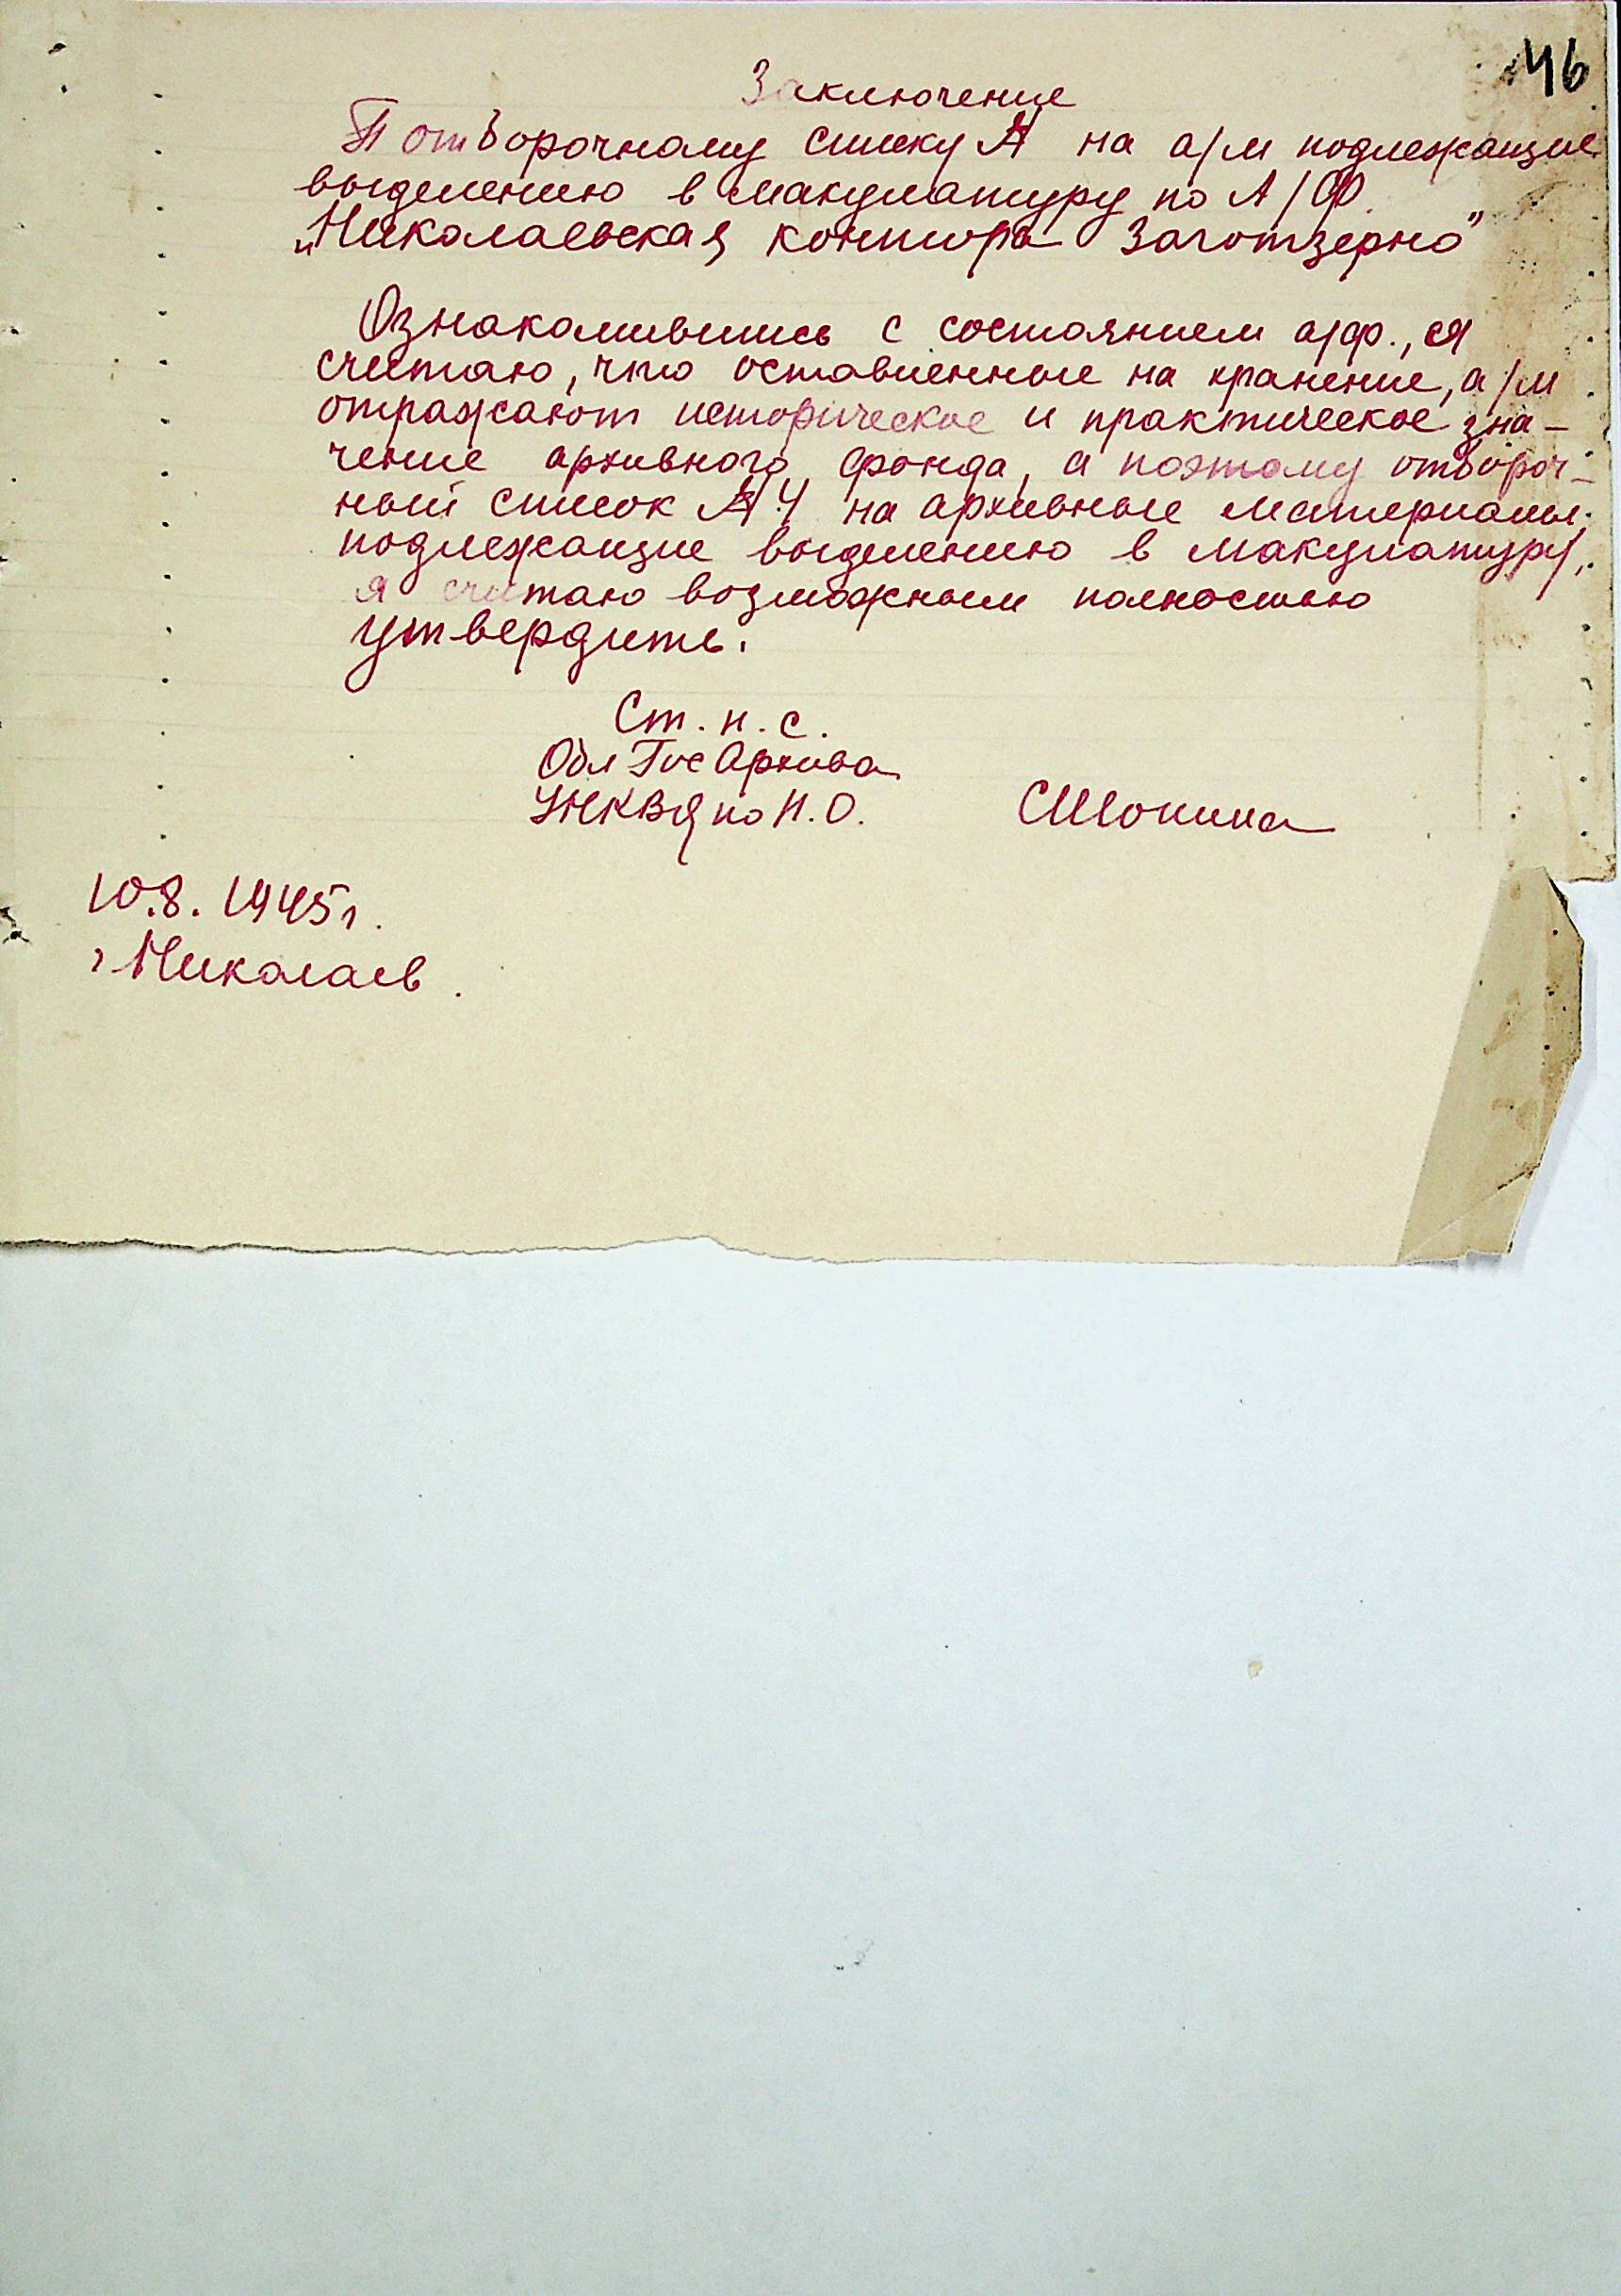 46
Заключение
П отборочному списку А на а/м подлежащие
выделению в макулатуру по А/Ф.
„Николаевская контора Заготзерно"
Ознакомившись с состоянием а/ф., я
считаю, что оставленные на хранение, а/м
отражают историческое и практическое зна-
чение архивного фонда, а поэтому отбороч-
ный список А Ч на архивные материалы,
подлежащие выделению в макулатуру,
я считаю возможным полностью
утвердить.
Ст. н. с.
Обл Гос Архива
УНКВД по Н. О.
10.8. 1945 г.
г Николаев.